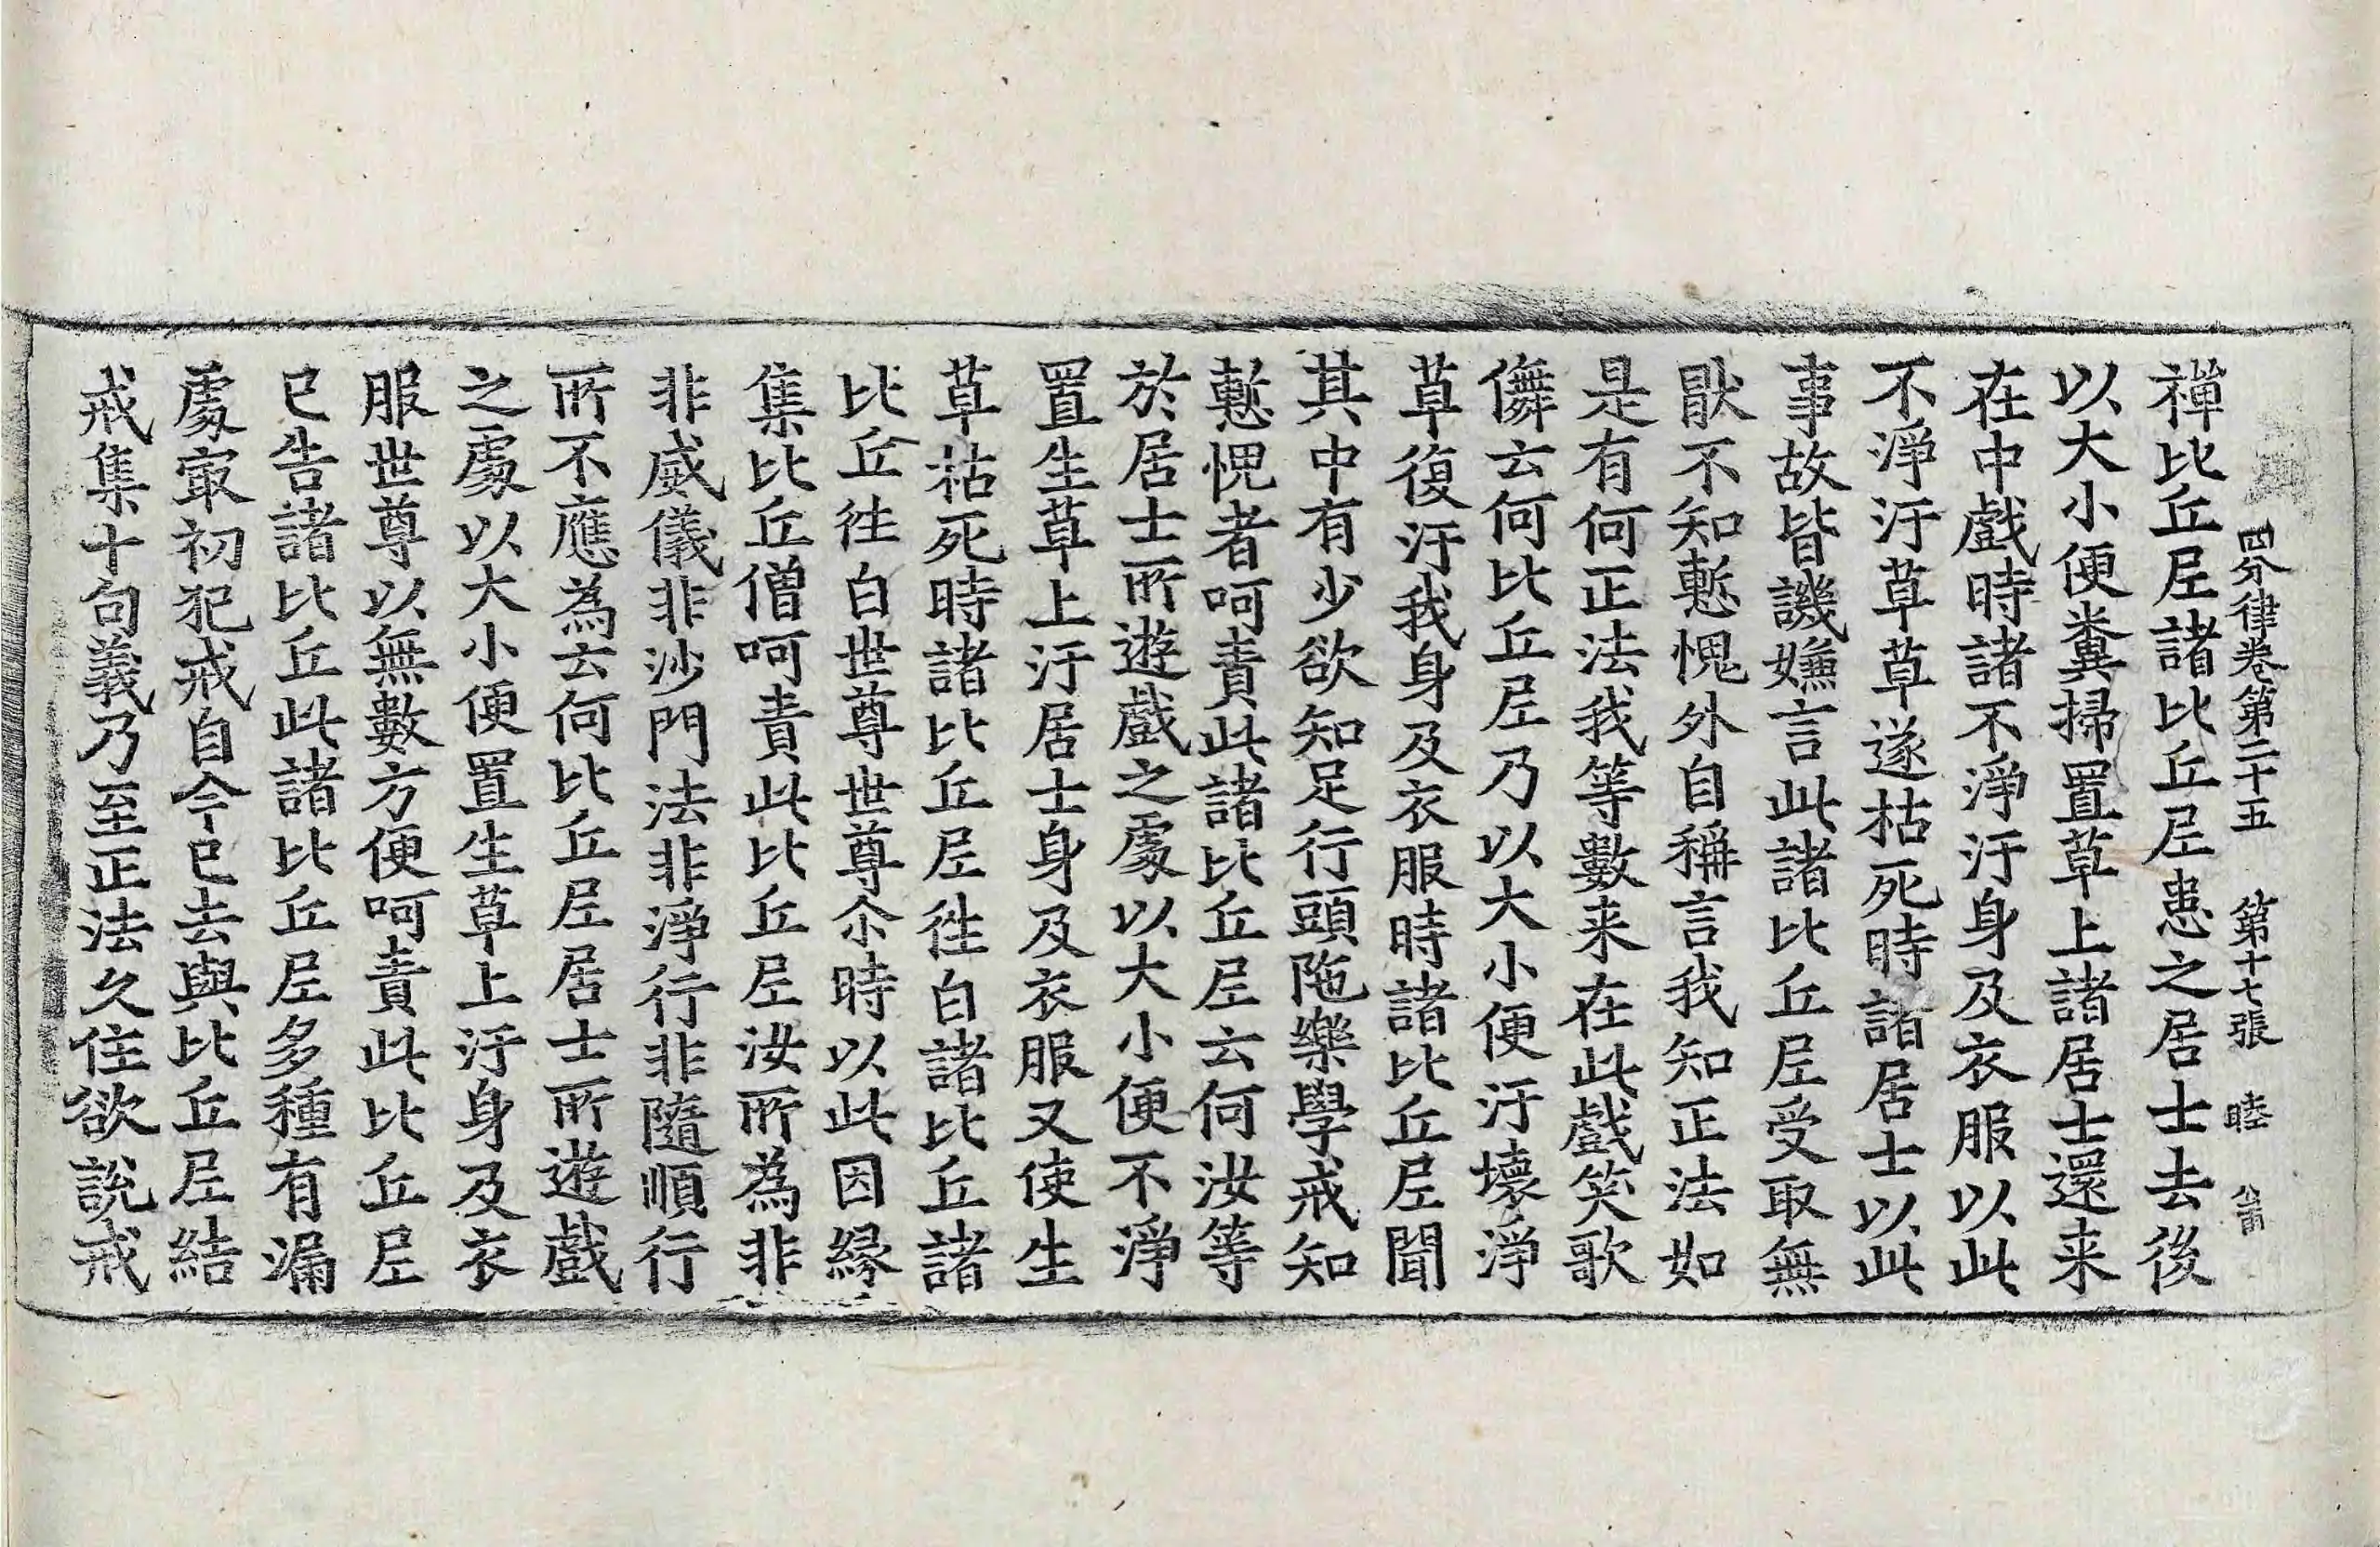 四分律卷第二十五　第十七張　睦
禪比丘尼諸比丘尼患之居士去後
以大小便糞掃置草上諸居士還来
在中戲時諸不淨汙身及衣服以此
不淨汙草草遂枯死時諸居士以此
事故皆譏嫌言此諸比丘尼受取無
猒不知慙愧外自稱言我知正法如
是有何正法我等數来在此戲笑歌
儛云何比丘尼乃以大小便汙壞淨
草復汙我身及衣服時諸比丘尼聞
其中有少欲知足行頭陁樂學戒知
慙愧者呵責此諸比丘尼云何汝等
於居士所遊戲之處以大小便不淨
置生草上汙居士身及衣服又使生
草枯死時諸比丘尼徃白諸比丘諸
比丘徃白世尊世尊尒時以此因緣
集比丘僧呵責此比丘尼汝所為非
非威儀非沙門法非淨行非隨順行
所不應為云何比丘尼居士所遊戲
之處以大小便置生草上汙身及衣
服世尊以無數方便呵責此比丘尼
已告諸比丘此諸比丘尼多種有漏
處冣初犯戒自今已去與比丘尼結
戒集十句義乃至正法久住欲說戒